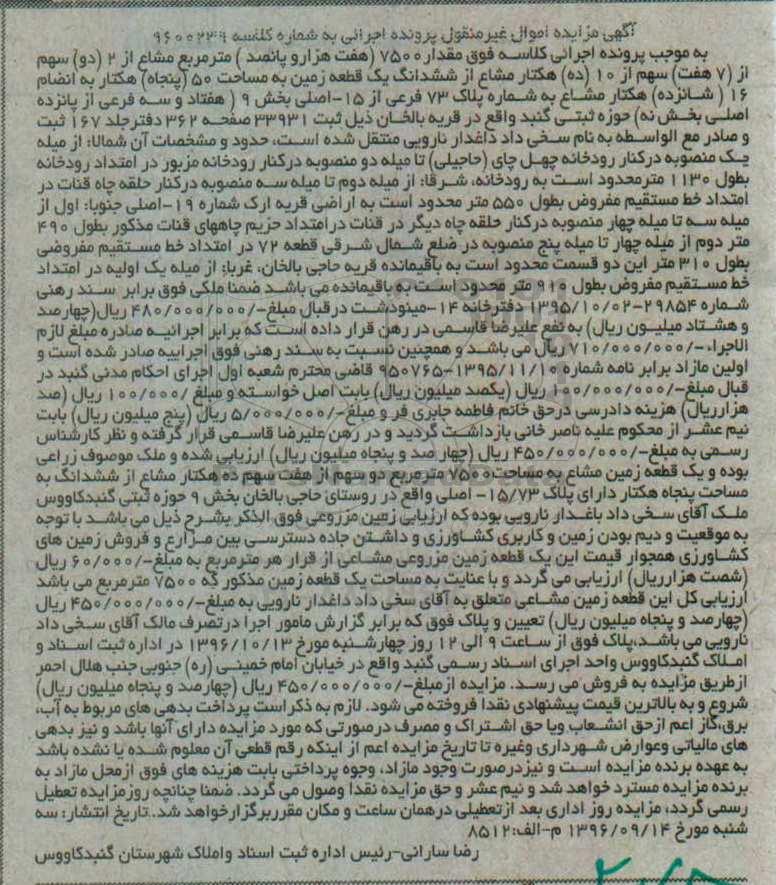 آگهی مزایده اموال غیرمنقول پرونده اجرائی به شماره کلاسه ۹۶۰۰۲۳۹
به موجب پرونده اجرائی کلاسه فوق مقدار ۷۵۰۰ (هفت هزارو پانصد ) مترمربع مشاع از ۲ (دو) سهم
از (۷ هفت) سهم از ۱۰ (ده) هکتار مشاع از ششدانگ یک قطعه زمین به مساحت ۵۰ (پنجاه) هکتار به انضام
۱۶ ( شانزده) هکتار مشاع به شماره پلاک ۷۳ فرعی از ۱۵-اصلی بخش ۹ ( هفتاد و سه فرعی از پانزده
اصلی بخش نه) حوزه ثبتی گنبد واقع در قریه بالخان ذیل ثبت ۳۳۹۳۱ صفحه ۳۶۲ دفترجلد ۱۶۷ ثبت
و صادر مع الواسطه به نام سخی داد داغدار نارویی منتقل شده است، حدود و مشخصات آن شمالا: از میله
یک منصوبه درکنار رودخانه چهل چای (حاجیلی) تا میله دو منصوبه درکنار رودخانه مزبور در امتداد رودخانه
بطول ۱۱۳۰ مترمحدود است به رودخانه، شرقا: از میله دوم تا میله سه منصوبه درکنار حلقه چاه قنات در
امتداد خط مستقیم مفروض بطول ۵۵۰ متر محدود است به اراضی قریه ارک شماره ۱۹-اصلی جنوبا: اول از
میله سه تا میله چهار منصوبه درکنار حلقه چاه دیگر در قنات درامتداد حریم چاههای قنات مذکور بطول ۴۹۰
متر دوم از میله چهار تا میله پنج منصوبه در ضلع شمال شرقی قطعه ۷۲ در امتداد خط مستقیم مفروضی
بطول ۳۱۰ متر این دو قسمت محدود است به باقیمانده قریه حاجی بالخان، غربا: از میله یک اولیه در امتداد
خط مستقیم مفروض بطول ۹۱۰ متر محدود است به باقیمانده می باشد ضمنا ملکی فوق برابر سند رهنی
شماره ۲۹۸۵۴-۱۳۹۵/۱۰/۰۲ دفترخانه ۱۴-مینودشت درقبال مبلغ-/۴۸۰/۰۰۰/۰۰۰ ریال(چهارصد
و هشتاد میلیون ریال) به نفع علیرضا قاسمی در رهن قرار داده است که برابر اجرائیه صادره مبلغ لازم
الاجراء-/۷۱۰/۰۰۰/۰۰۰ ریال می باشد و همچنین نسبت به سند رهنی فوق اجراییه صادر شده است و
اولین مازاد برابر نامه شماره ۱۳۹۵/۱۱/۱۰-۹۵۰۷۶۵ قاضی محترم شعبه اول اجرای احکام مدنی گنبد در
قبال مبلغ-/۱۰۰/۰۰۰/۰۰۰ ریال (یکصد میلیون ریال) بابت اصل خواسته و مبلغ /۱۰۰/۰۰۰ ریال (صد
هزارریال) هزینه دادرسی درحق خانم فاطمه جابری فر و مبلغ-/۵/۰۰۰/۰۰۰ ریال (پنج میلیون ریال) بابت
نیم عشر از محکوم علیه ناصر خانی بازداشت گردید و در رهن علیرضا قاسمی قرار گرفته و نظر کارشناس
رسمی به مبلغ-/۴۵۰/۰۰۰/۰۰۰ ریال (چهار صد و پنجاه میلیون ریال) ارزیابی شده و ملک موصوف زراعی
بوده و یک قطعه زمین مشاع به مساحت ۷۵۰۰ مترمربع دو سهم از هفت سهم ده هکتار مشاع از ششدانگ به
مساحت پنجاه هکتار دارای پلاک ۱۵/۷۳- اصلی واقع در روستای حاجی بالخان بخش ۹ حوزه ثبتی گنبدکاووس
ملک آقای سخی داد باغدار نارویی بوده که ارزیابی زمین مزروعی فوق الذکر بشرح ذیل می باشد با توجه
به موقعیت و دیم بودن زمین و کاربری کشاورزی و داشتن جاده دسترسی بین مزارع و فروش زمین های
کشاورزی همجوار قیمت این یک قطعه زمین مزروعی مشاعی از قرار هر مترمربع به مبلغ-/۶۰/۰۰۰ ریال
(شصت هزارریال) ارزیابی می گردد و با عنایت به مساحت یک قطعه زمین مذکور که ۷۵۰۰ مترمربع می باشد
ارزیابی کل این قطعه زمین مشاعی متعلق به آقای سخی داد داغدار نارویی به مبلغ-/۴۵۰/۰۰۰/۰۰۰ ریال
(چهارصد و پنجاه میلیون ریال) تعیین و پلاک فوق که برابر گزارش مامور اجرا درتصرف مالک آقای سخی داد
نارویی می باشد،پلاک فوق از ساعت ۹ الی ۱۲ روز چهارشنبه مورخ ۱۳۹۶/۱۰/۱۳ در اداره ثبت اسناد و
املاک گنبدکاووس واحد اجرای اسناد رسمی گنبد واقع در خیابان امام خمینی (ره) جنوبی جنب هلال احمر
ازطریق مزایده به فروش می رسد. مزایده ازمبلغ-/۴۵۰/۰۰۰/۰۰۰ ریال (چهارصد و پنجاه میلیون ریال)
شروع و به بالاترین قیمت پیشنهادی نقدا فروخته می شود. لازم به ذکراست پرداخت بدهی های مربوط به آب،
برق،گاز اعم ازحق انشعاب ویا حق اشتراک و مصرف درصورتی که مورد مزایده دارای آنها باشد و نیز بدهی
های مالیاتی وعوارض شهرداری وغیره تا تاریخ مزایده اعم از اینکه رقم قطعی آن معلوم شده یا نشده باشد
به عهده برنده مزایده است و نیزدرصورت وجود مازاد، وجوه پرداختی بابت هزینه های فوق ازمحل مازاد به
برنده مزایده مسترد خواهد شد و نیم عشر و حق مزایده نقدا وصول می گردد. ضمنا چنانچه روزمزایده تعطیل
رسمی گردد، مزایده روز اداری بعد ازتعطیلی درهمان ساعت و مکان مقرربرگزارخواهد شد.تاریخ انتشار: سه
شنبه مورخ ۱۳۹۶/۰۹/۱۴ م-الف:۸۵۱۲
رضا سارانی-رئیس اداره ثبت اسناد واملاک شهرستان گنبدکاووس